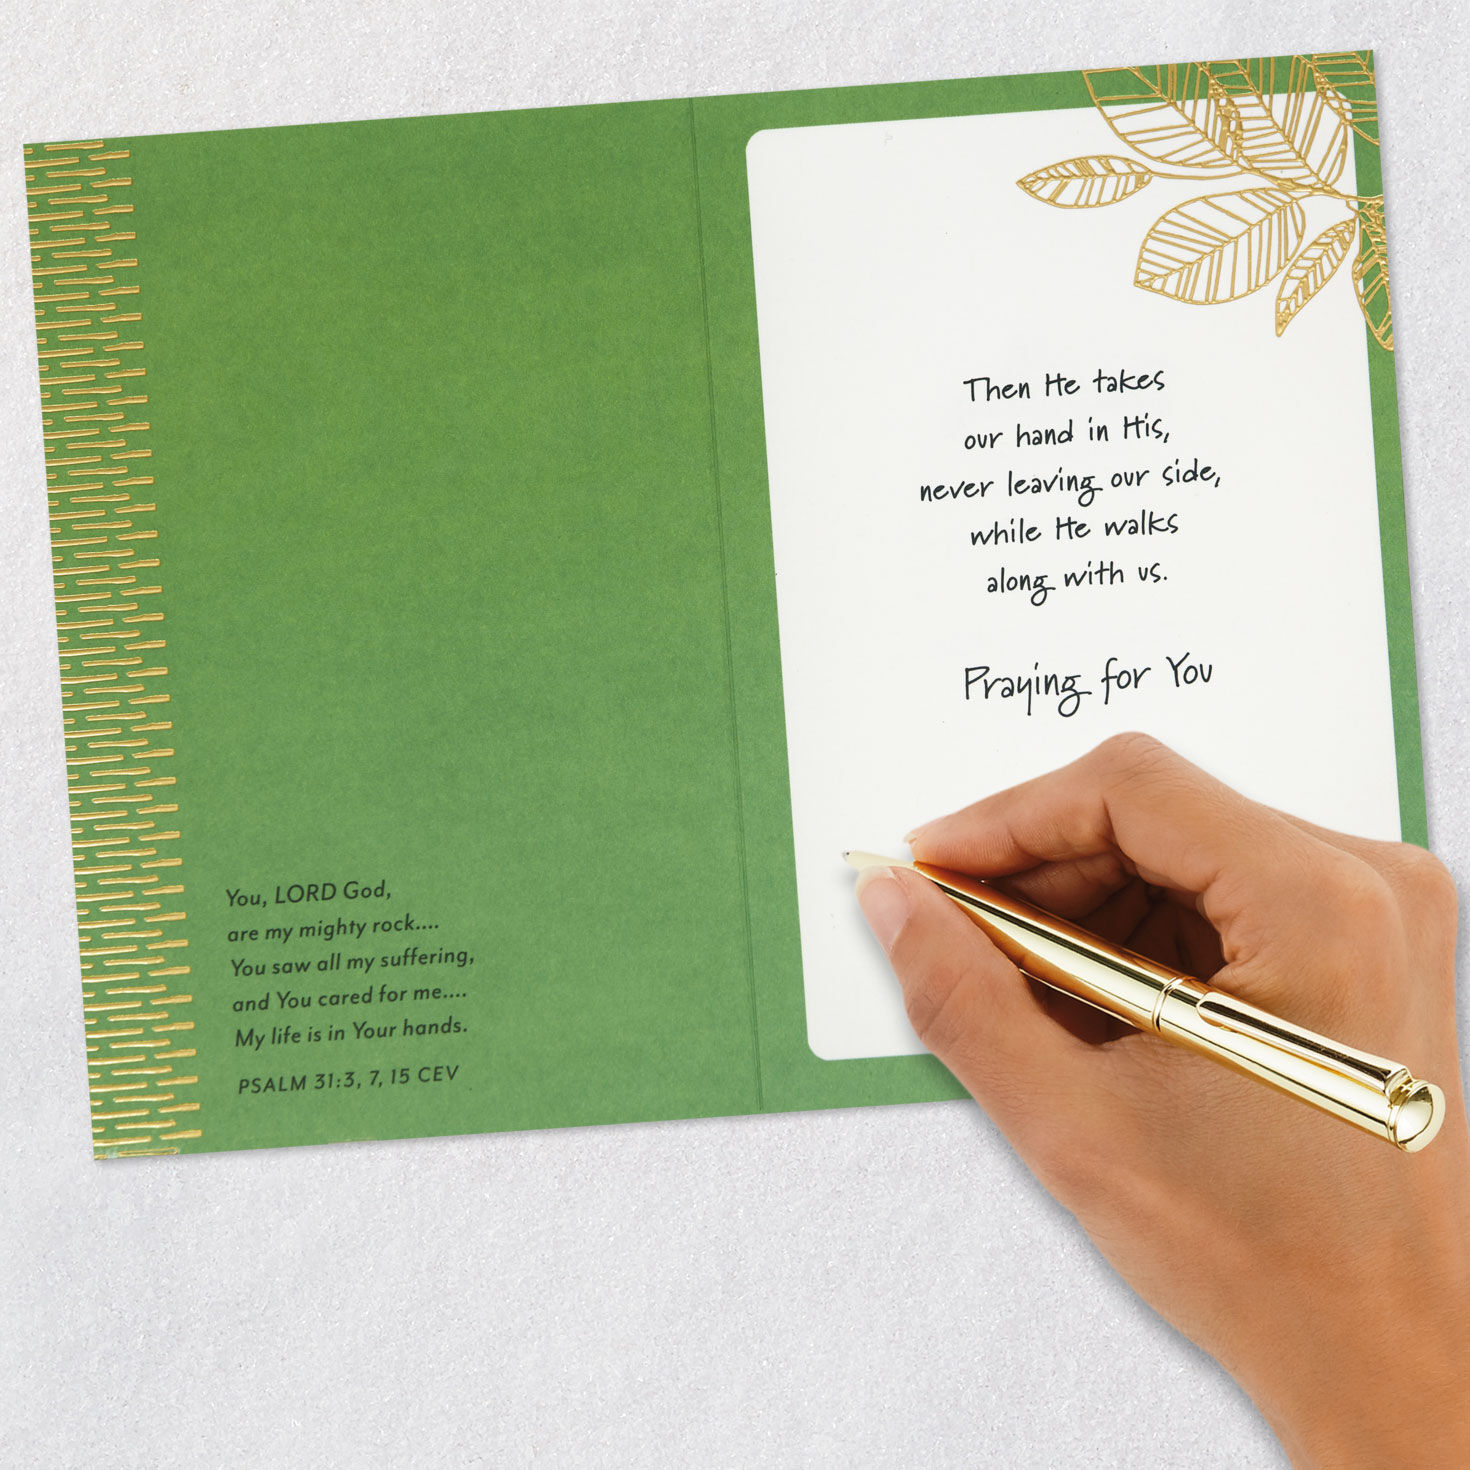 You, LORD God,
are my mighty rock....
You saw all my suffering,
and You cared for me....
My life is in Your hands.
PSALM 31:3, 7, 15 CEV
Then He takes
our hand in His,
never leaving our side,
while He walks
along with us.
Praying for You